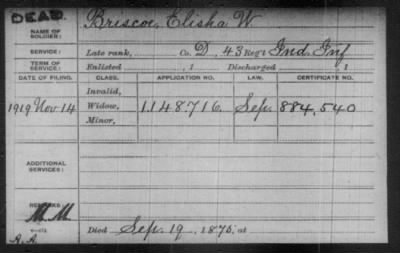 DEAD.
NAME OF SOLDIER: Briscoe, Elisha W.
SERVICE: Late rank, Co. D, 43 Reg't Ind. Inf
TERM OF SERVICE: Enlisted , 1 Discharged , 1
DATE OF FILING. CLASS. APPLICATION NO. LAW. CERTIFICATE NO.
Invalid,
1919 Nov 14 Widow, 1148,716. Sep. 884,540
Minor,
ADDITIONAL SERVICES:
REMARKS:
M.M
Died Sep. 19, 1875, at
A.A.